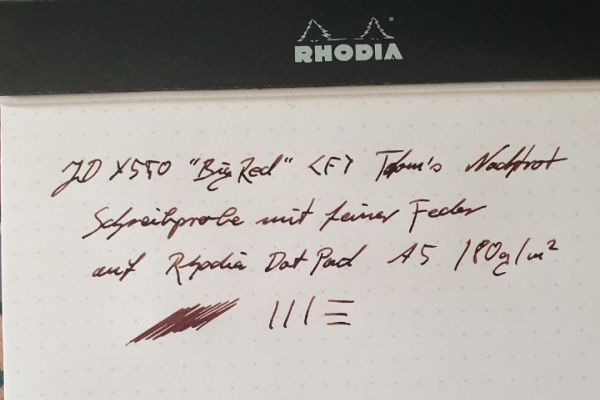 RHODIA
JD X550 "Big Red" <F> Nachtrot
Schreibprobe mit feiner Feder
auf Rhodia Dot Pad A5 180g/m²